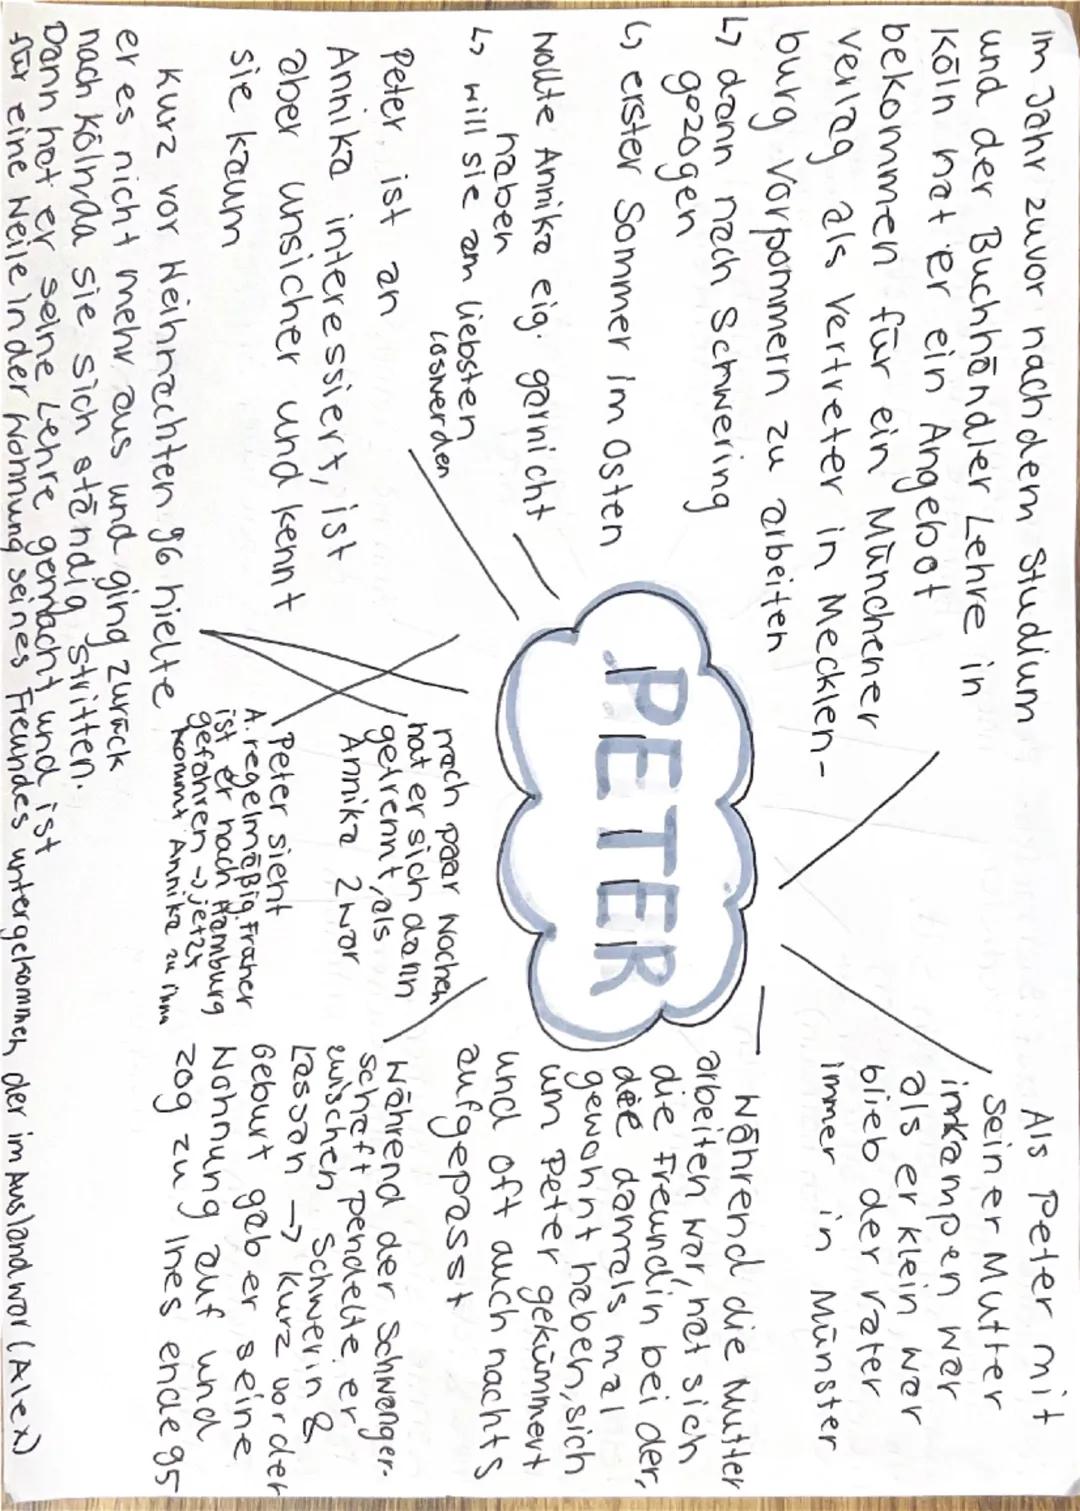 Im Jahr zuvor nach dem Studium
und der Buchhändler Lehre in
Köln hat er ein Angebot
bekommen für ein Münchener
verlag als Vertreter in Mecklen-
burg Vorpommern zu arbeiten
↳ dann nach Schwering
gezogen
↳ erster Sommer im Osten
Wollte Annika eig. garnicht
haben
↳ will sie am liebsten
loswerden
Peter ist an
Annika interessiert, ist
aber unsicher und kennt
sie kaum
Kurz vor Weihnachten 96 hielte
er es nicht mehr aus und ging zurück
nach Köln da sie sich ständig stritten.
Dann hat er seine Lehre gemacht und ist
für eine Weile in der Wohnung seines Freundes untergekommen, der im Ausland war (Alex)
PETER
nach paar Wochen
hat er sich dann
getrennt, als
Annika 2 war
Peter sieht
A. regelmäßig. Früher
ist er nach Hamburg
gefahren → jetzt
kommt Annika zu ihm
Als Peter mit
seiner Mutter
in Kampen war
als er klein war
blieb der Vater
immer in Münster
Während die Mutter
arbeiten war, hat sich
die Freundin bei der,
die damals mal
gewohnt haben, sich
um Peter gekümmert
und oft auch nachts
aufgepasst
Während der Schwanger-
schaft pendelte er
zwischen Schwerin &
Lassan → kurz vor der
Geburt gab er seine
Wohnung auf und
zog zu Ines ende 95